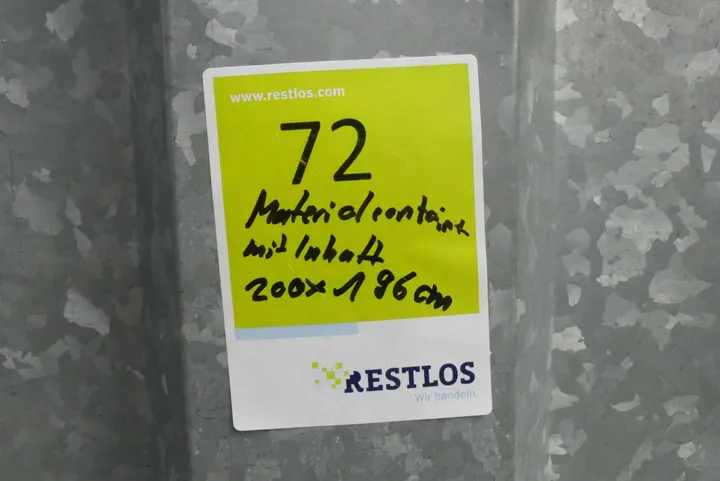 www.restlos.com
72
Materialcontainer
mit Inhalt
200x196cm
RESTLOS
Wir handeln.